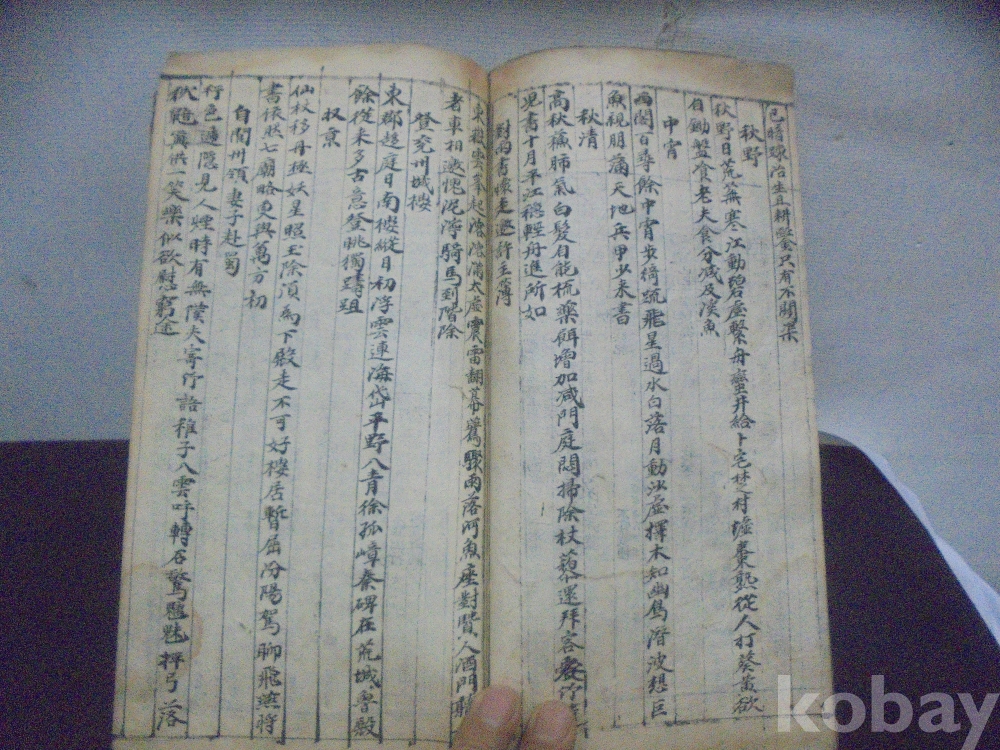 已晴緑治生且耕鑿只有不關渠
秋野
秋野日荒蕪寒江動碧虛繋舟蠻井絡卜宅楚村墟棗熟從人打葵荒欲
自鋤盤飡老夫食分減及溪魚
中宵
西閣百尋餘中宵步綺疏飛星過水白落月動沙虛擇木知幽鳥潛波想巨
魚視朋滿天地兵甲少来書
秋清
高秋蘓肺氣白髪自能梳藥餌增加減門庭悶掃除杖藜還拜客愛竹
児書十月平江穩輕舟進所如
對雨書懐走邀許主簿
東嶽雲峯起溶溶滿太虛震雷翻幕鷰驟雨落河魚座對賢人酒門聴
老車相邀愧泥濘騎馬到階除
登兗州城樓
東郡趍庭日南樓縦目初浮雲連海岱平野入青徐孤嶂秦碑在荒城魯殿
餘從来多古意登眺獨躊跙
収京
仙杖移丹極妖星照玉除湏為下殿走不可好樓居暫屈汾陽駕聊飛燕将
書依然七廟略更與萬方初
自閬州領妻子赴蜀
行色逓隠見人煙時有無僕夫穿竹語稚子入雲呼轉石驚魑魅抨弓落
狖鼯眞供一笑樂似欲慰窮途
kobay